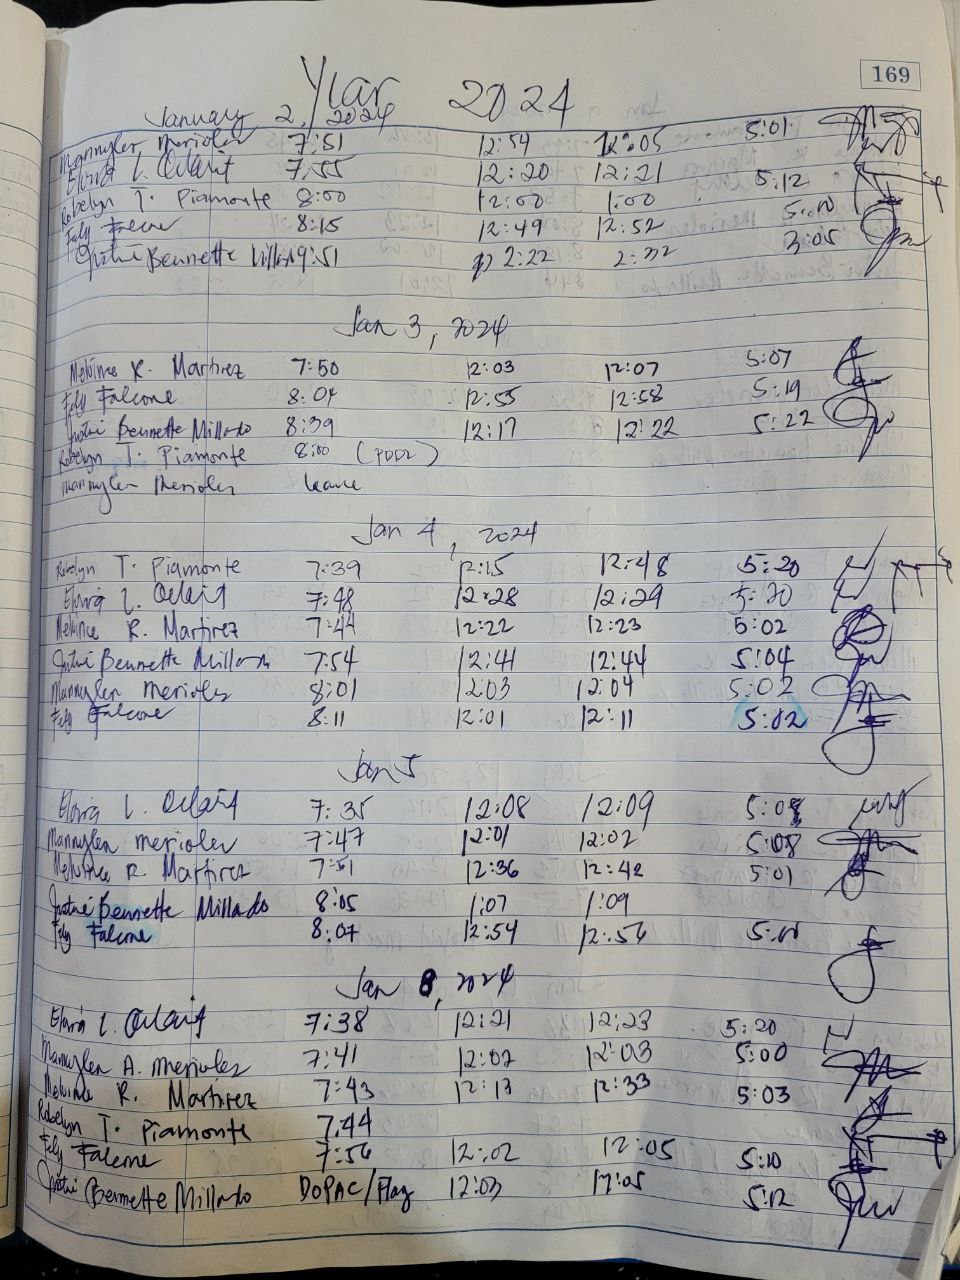 169
Year 2024
January 2, 2024
Mannylen Merioles 7:51 12:54 12:05 5:01
Elvira L. 7:55 12:20 12:21 5:12
Robelyn T. Piamonte 8:00 12:00 1:00 5:00
Fely 8:15 12:49 12:52 3:05
Bennette 9:51 2:22 2:32
Jan 3, 2024
Melvince R. Martirez 7:50 12:03 12:07 5:07
Fely Falcone 8:04 12:55 12:58 5:19
Bennette Millado 8:39 12:17 12:22 5:22
Robelyn T. Piamonte 8:00
Mannylen Merioles leave
Jan 4, 2024
Robelyn T. Piamonte 7:39 12:15 12:48 5:20
Elvira L. 7:48 12:28 12:29 5:20
Melvince R. Martirez 7:44 12:22 12:23 5:02
Bennette Millado 7:54 12:41 12:44 5:04
Mannylen Merioles 8:01 12:03 12:04 5:02
Fely Falcone 8:11 12:01 12:11 5:02
Jan 5
Elvira L. 7:35 12:08 12:09
Mannylen Merioles 7:47 12:01 12:02 5:08
Melvince R Martirez 7:51 12:36 12:42 5:01
Bennette Millado 8:05 1:07 1:09
Fely Falcone 8:07 12:54 12:56 5:00
Jan 8, 2024
Elvira L. 7:38 12:21 12:23 5:20
Mannylen A. Merioles 7:41 12:02 12:03 5:00
Melvince R. Martirez 7:43 12:13 12:33 5:03
Robelyn T. Piamonte 7:44
Fely Falcone 7:56 12:02 12:05 5:10
Bennette Millado DOPAC/Flag 12:03 12:05 5:12